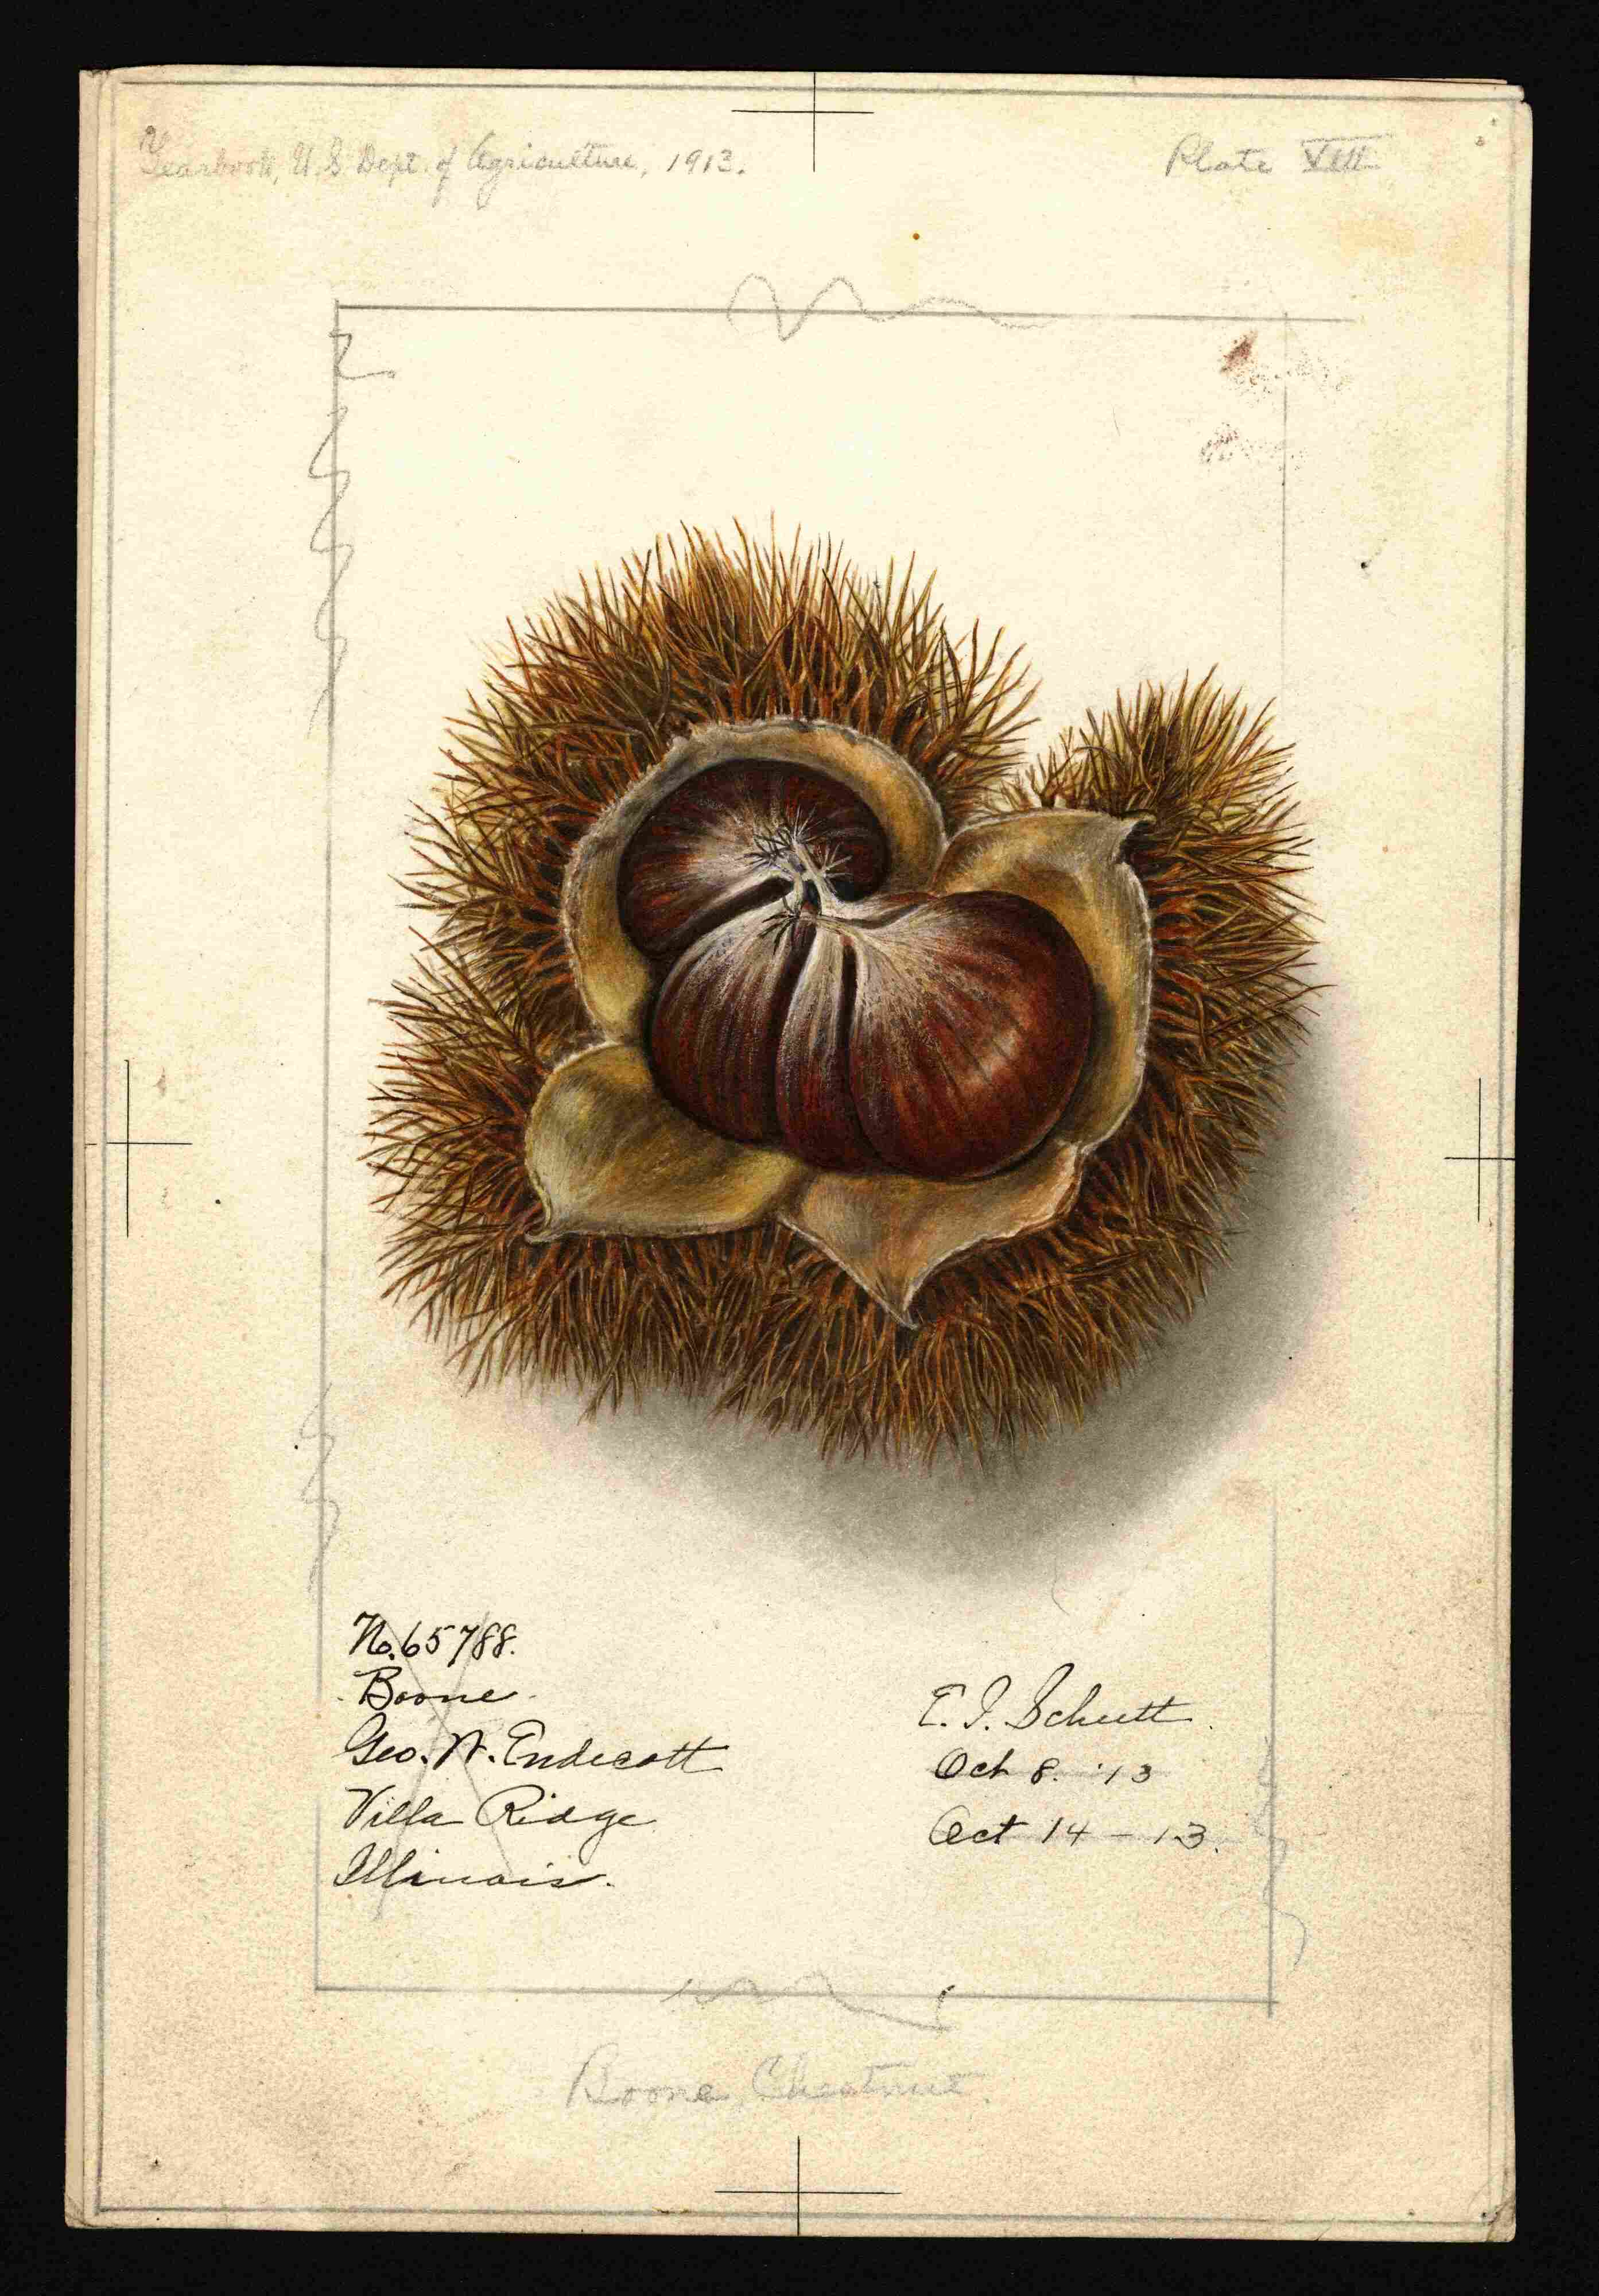 Yearbook, U.S Dept. of Agriculture, 1913.
Plate VIII
No. 65788.
Boone
Geo. W. Endicott
Villa Ridge
Illinois.
E. I. Schutt.
Oct 8. '13
Oct 14 - 13.
Boone Chestnut.